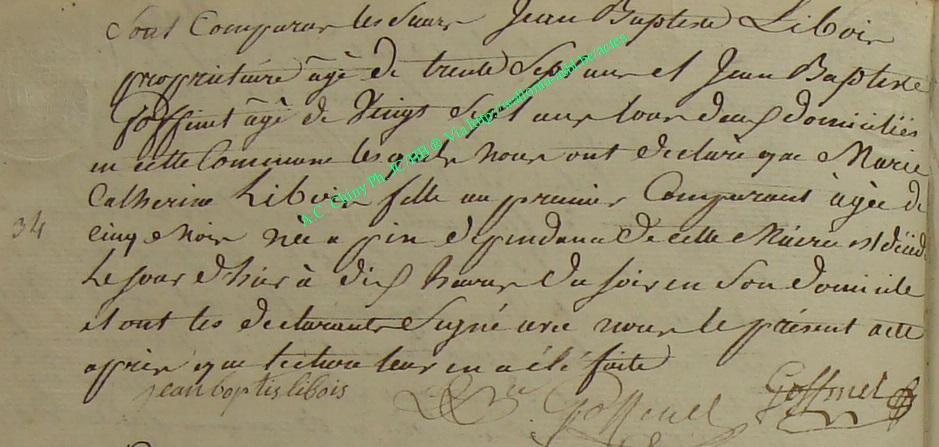 Sont Comparus les Sieurs Jean Baptiste Libois
propriétaire âgé de trente Sept ans et Jean Baptiste
Goffinet âgé de Vingt Sept ans tous deux domiciliés
en cette Commune lesquels nous ont déclaré que Marie
Catherine Libois fille au premier Comparant âgée de
34 cinq Mois née a pin dépendance de cette Mairie est décédé
Le jour d'hier à dix heures du soir en Son domicile
et ont les déclarants Signé avec nous le présent acte
après que lecture leur en a été faite
jean baptis libois Goffinet Goffinet
A.C. Chiny Ph. JC HB @ Via http://wallonia-asbl.be/actes